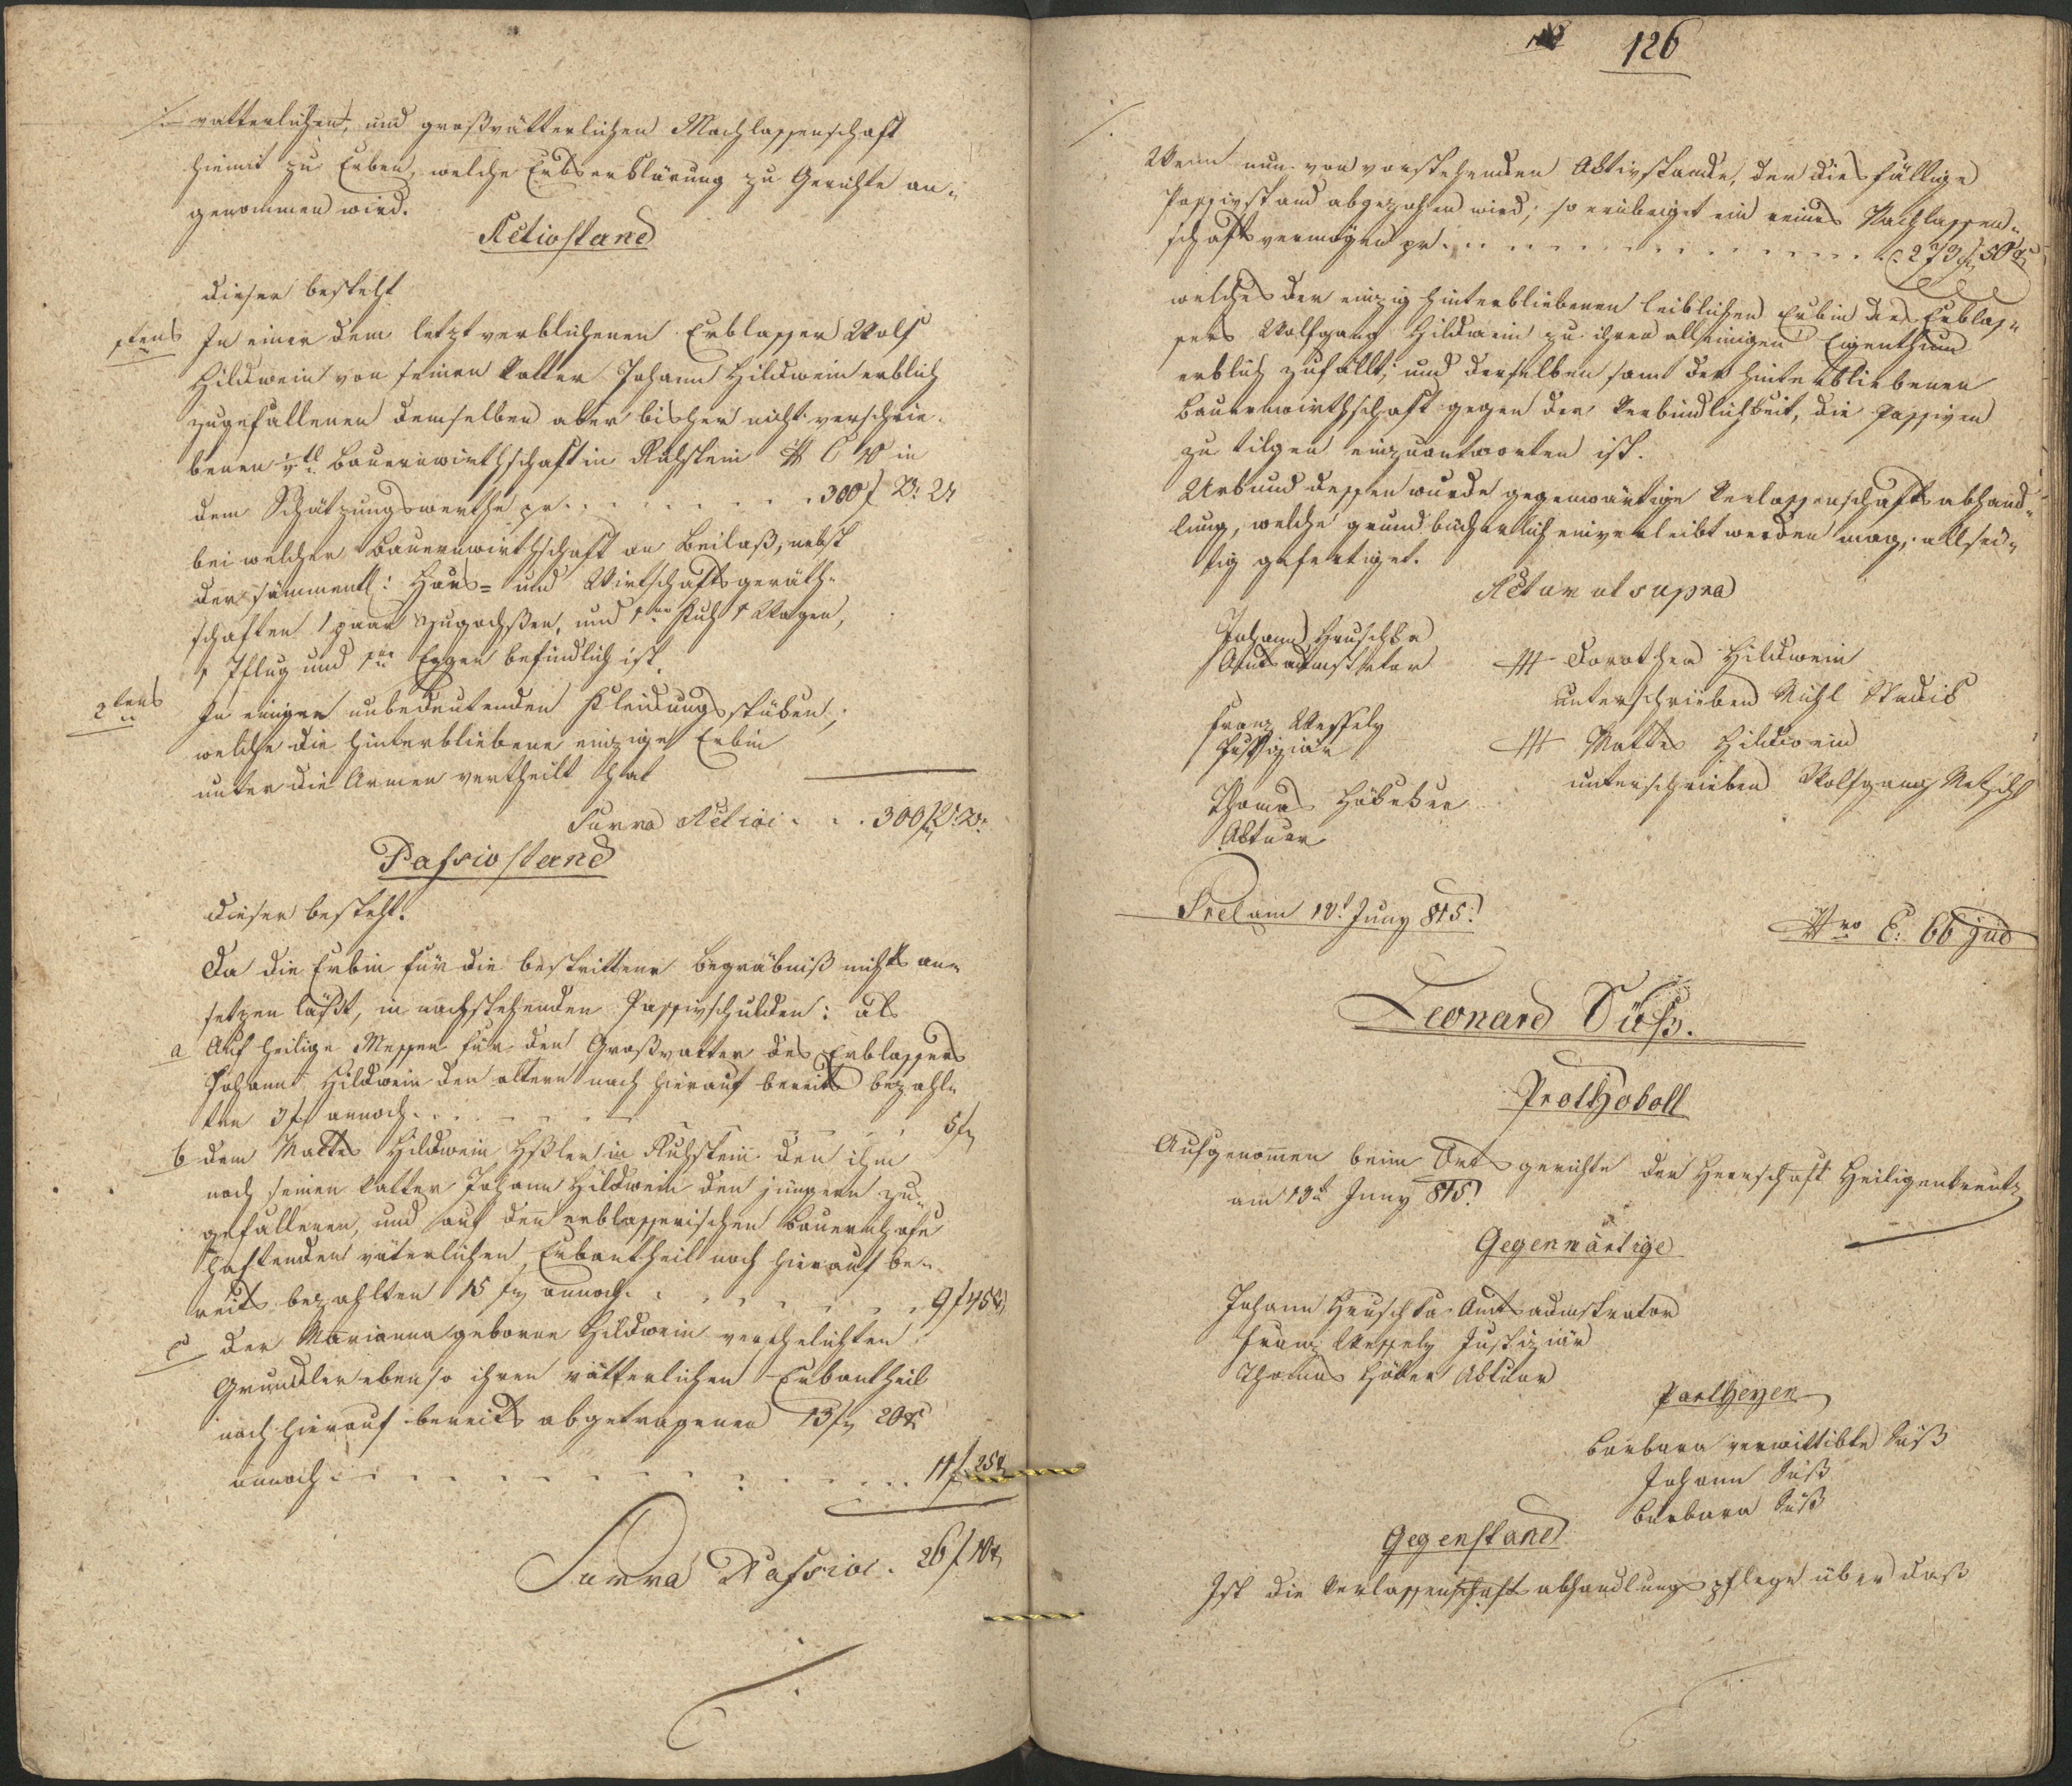 ./. vatterlichen, und großvätterlichen Nachlassenschaft
hiemit zu Erben, welche Erbserklärung zu Gerichte an-
genommen wird.
Activstand
dieser besteht
1tens In einer dem letzt verblichenen Erblasser Wolf
Hildwein von seinen Vatter Johann Hildwein erblich
zugefallenen demselben aber bisher nicht verschrie-
benen Bauernwirthschaft in Ruhstein in
dem Schätzungswerthe pr. . . . 300 f W: W
bei welcher Bauernwirthschaft an Beilaß, nebst
der sämmentl: Haus= und Wirtschaftsgeräth-
schaften 1 paar Zugochßen, und 1 Kuh 1 Wagen,
1 Pflug und Eggen befindlich ist.
2tens In einigen unbedeutenden Kleidungsstüken,
welche die hinterbliebene einzige Erbin
unter die Armen vertheilt hat
Suma Activi . . . 300 f W: W:
Passivstand
Dieser besteht:
Da die Erbin für die bestrittene Begräbniß nichts an-
setzen läßt, in nachstehenden Passivschulden: als
a Auf heilige Messen für den Großvatter des Erblassers
Johann Hildwein den ältern nach hierauf bereits bezahl-
ten 3 f annoch . . . 5 f
b dem Mattes Hildwein Hßler in Ruhstein den ihm
nach seinen Vatter Johann Hildwein den jüngern zu-
gefallenen, und auf den erblasserischen Bauernhofe
haftenden väterlichen Erbantheil nach hierauf be-
reits bezahlten 15 f annoch . . . 9 f 45 x
c der Marianna geborne Hildwein verehelichten
Grundler ebenso ihren vätterlichen Erbantheil
nach hierauf bereits abgetragenen 13 f 20 x
annoch . . . 11 f 25 x
Suma Passivi . 26 f 10 x
126
./.
Wenn nun von vorstehenden Aktivstande, der diesfällige
Passivstand abgezohen wird, so erübriget ein reines Nachlassen-
schaftsvermögen pr. . . . 273 f 50 x
welches der einzig hinterbliebenen leiblichen Erbin des Erblas-
sers Wolfgang Hildwein zu ihren alleinigen Eigenthum
erblich zufällt, und derselben samt der hinterbliebenen
Bauernwirthschaft gegen der Verbindlichkeit, die Passiven
zu tilgen einzuantworten ist.
Urkund dessen wurde gegenwärtige Verlassenschaftsabhand-
lung, welche grundbücherlich einverleibt werden mag, allsei-
tig gefertiget.
Actum ut supra
Johann Hruschka
Amtsadmstrator
Franz Wessely
Justiziär
Thomas
Aktuar
+++ Dorothea Hildwein
unterschrieben
+++ Mattes Hildwein
unterschrieben Wolfgang
am Juny 815.
Nro E: 66 jud
Leonard Süß.
Prothokoll
Aufgenommen beim Ortsgerichte der Herrschaft Heiligenkreutz
am 13t Juny 815.
Gegenwärtige
Johann Hruschka Amtsadmstrator
Franz Wessely Justiziär
Thomas Aktuar
Partheyen
Barbara verwittibte Süß
Johann Süß
Barbara Süß
Gegenstand
Ist die Verlassenschaftabhandlungspflege über daß